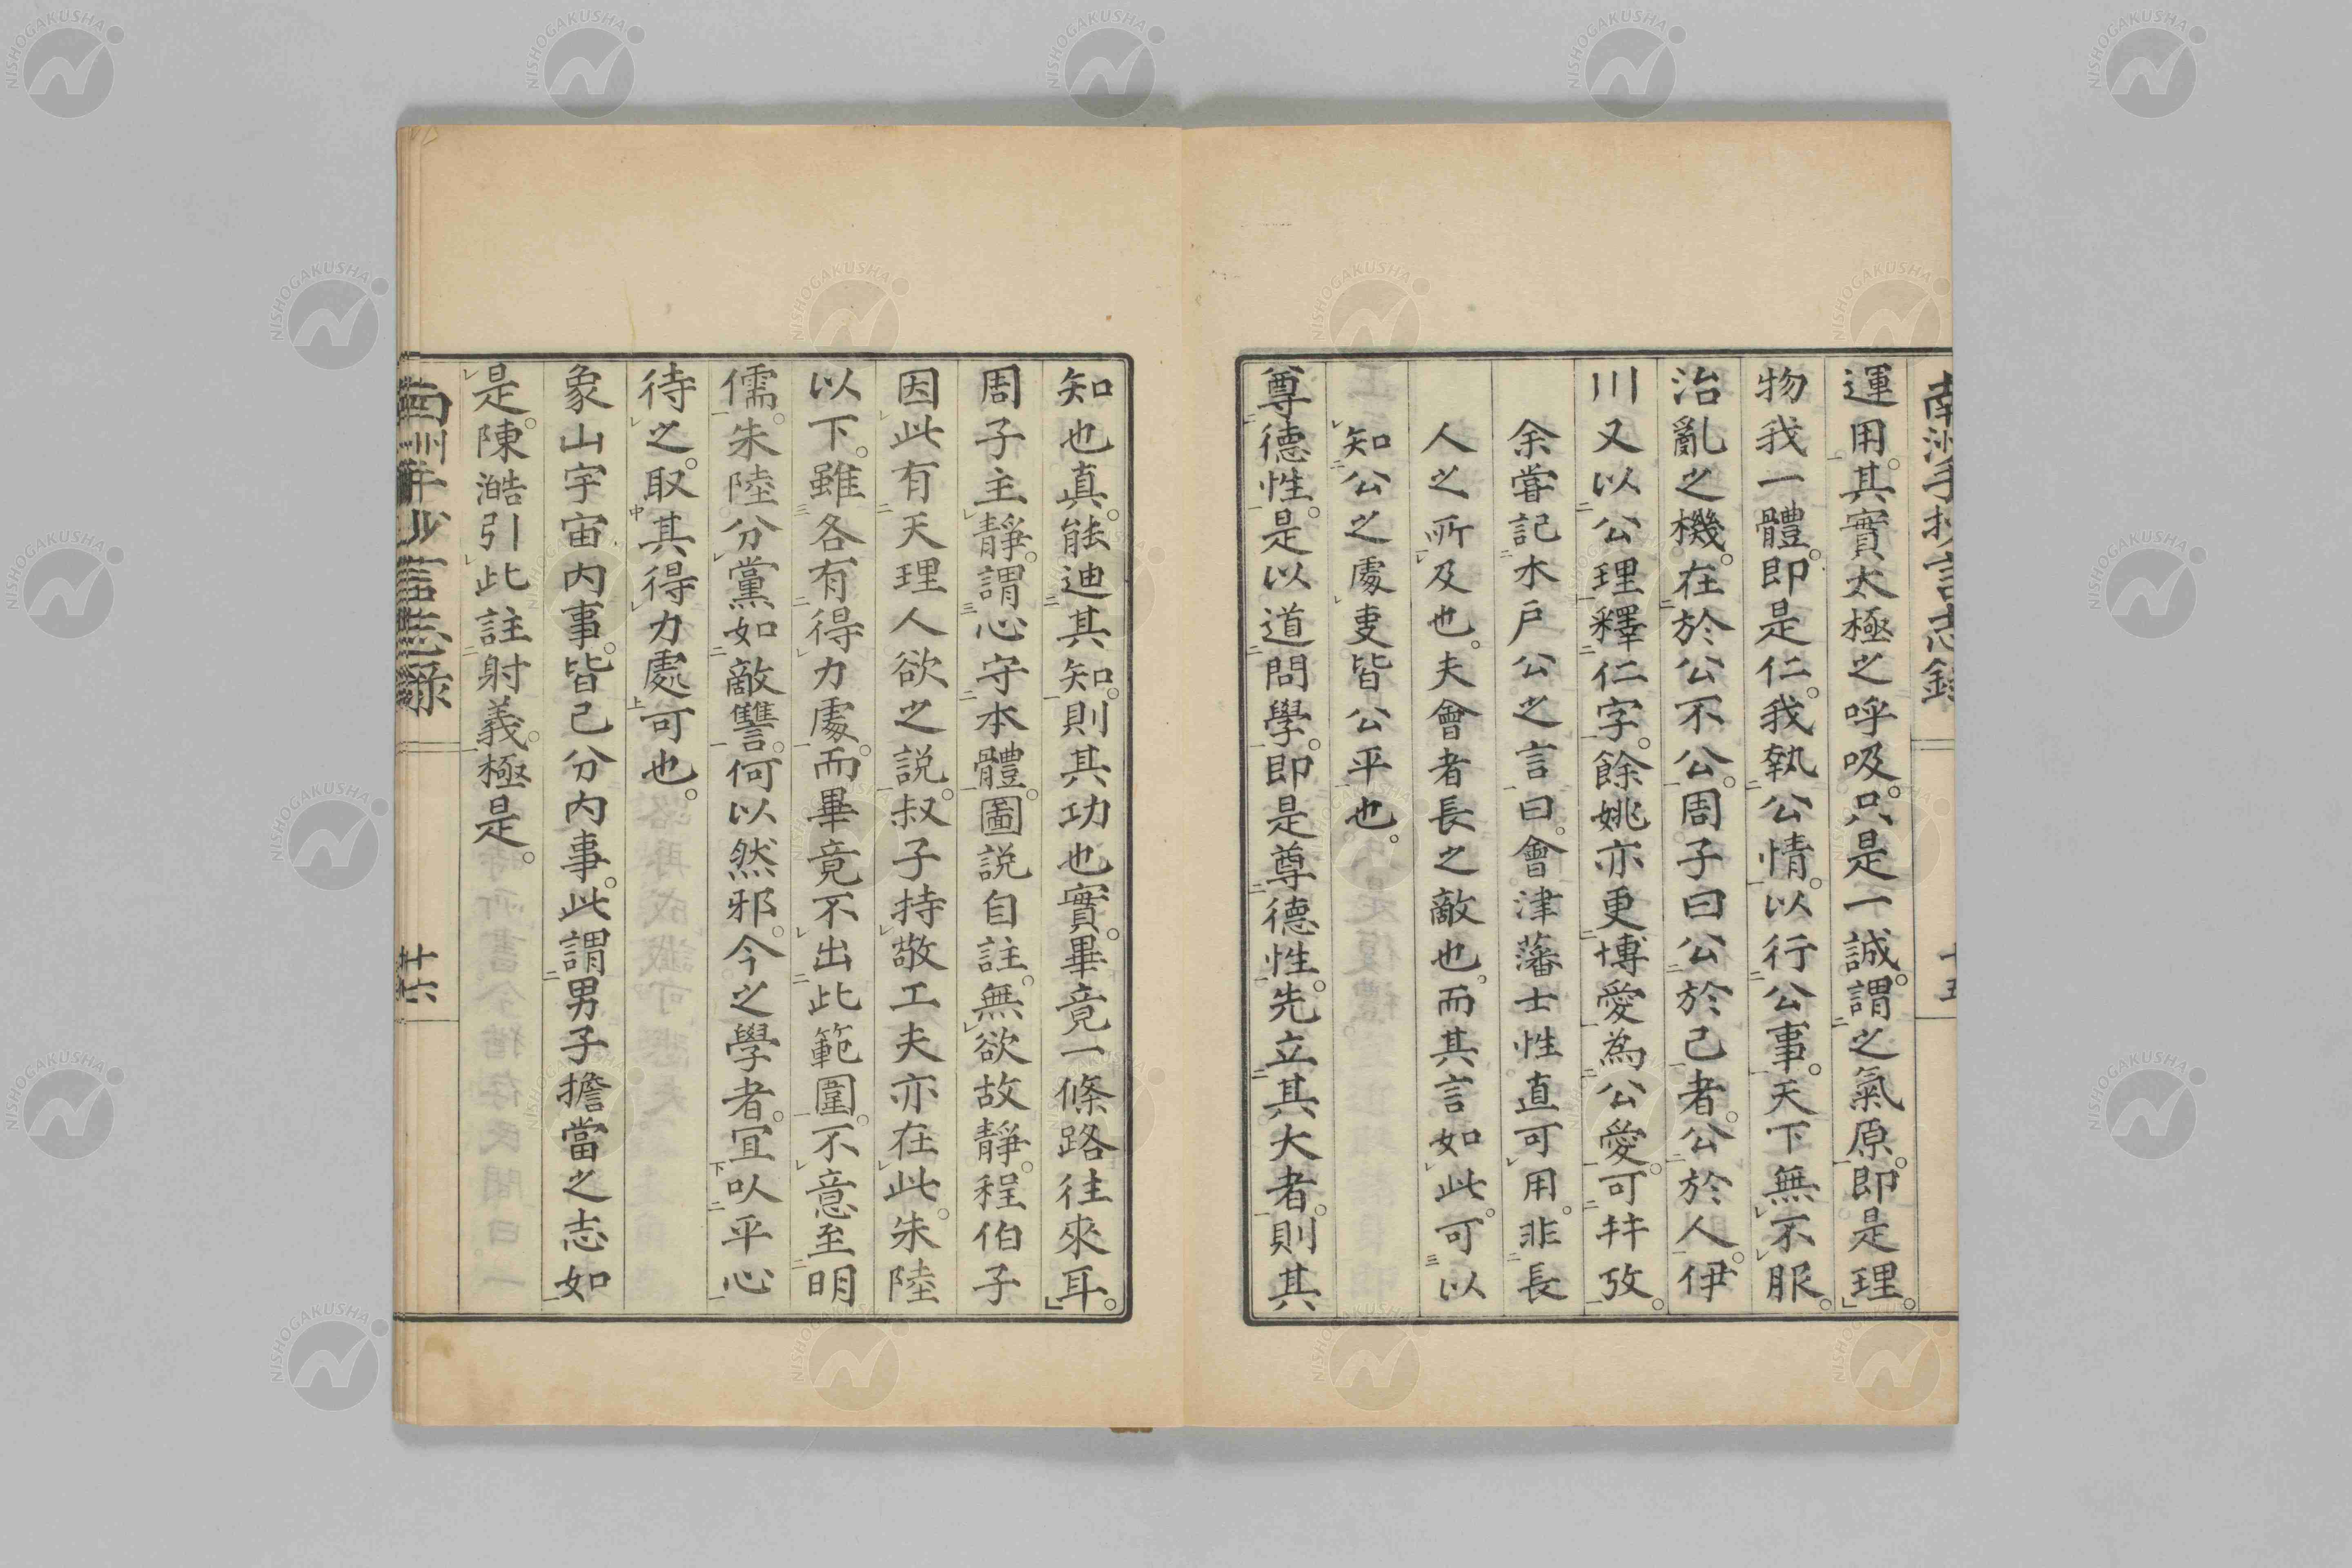 運用。其實太極之呼吸。只是一誠。謂之氣原。即是理。
物我一體。即是仁。我執公情。以行公事。天下無不服。
治亂之機。在於公不公。周子曰公於己者。公於人。伊
川又以公理釋仁字。餘姚亦更博愛為公愛。可幷攷。
余嘗記水戶公之言曰。會津藩士性直可用。非長
人之所及也。夫會者長之敵也。而其言如此。可以
知公之處叓皆公平也。
尊德性。是以道問學。即是尊德性。先立其大者。則其
知也真。能迪其知。則其功也實。畢竟一條路往來耳。
周子主靜。謂心守本體。圖說自註。無欲故靜。程伯子
因此有天理人欲之說。叔子持敬工夫亦在此。朱陸
以下。雖各有得力處。而畢竟不出此範圍。不意至明
儒。朱陸分黨如敵讐。何以然邪。今之學者。宜以平心
待之。取其得力處可也。
象山宇宙內事。皆己分內事。此謂男子擔當之志如
是。陳澔引此註射義。極是。
廿六
NISHOGAKUSHA